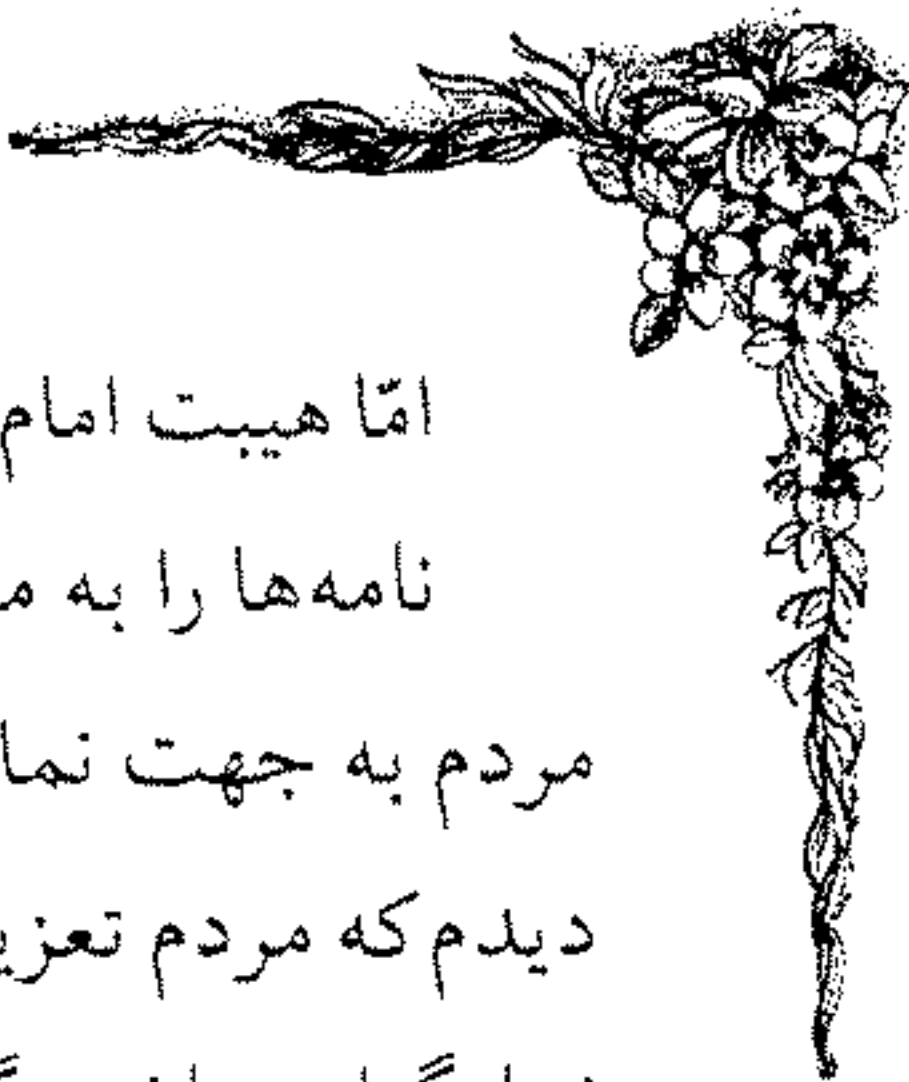 امّا هیبت امام
نامه‌ها را به
مردم به جهت
دیدم که مردم